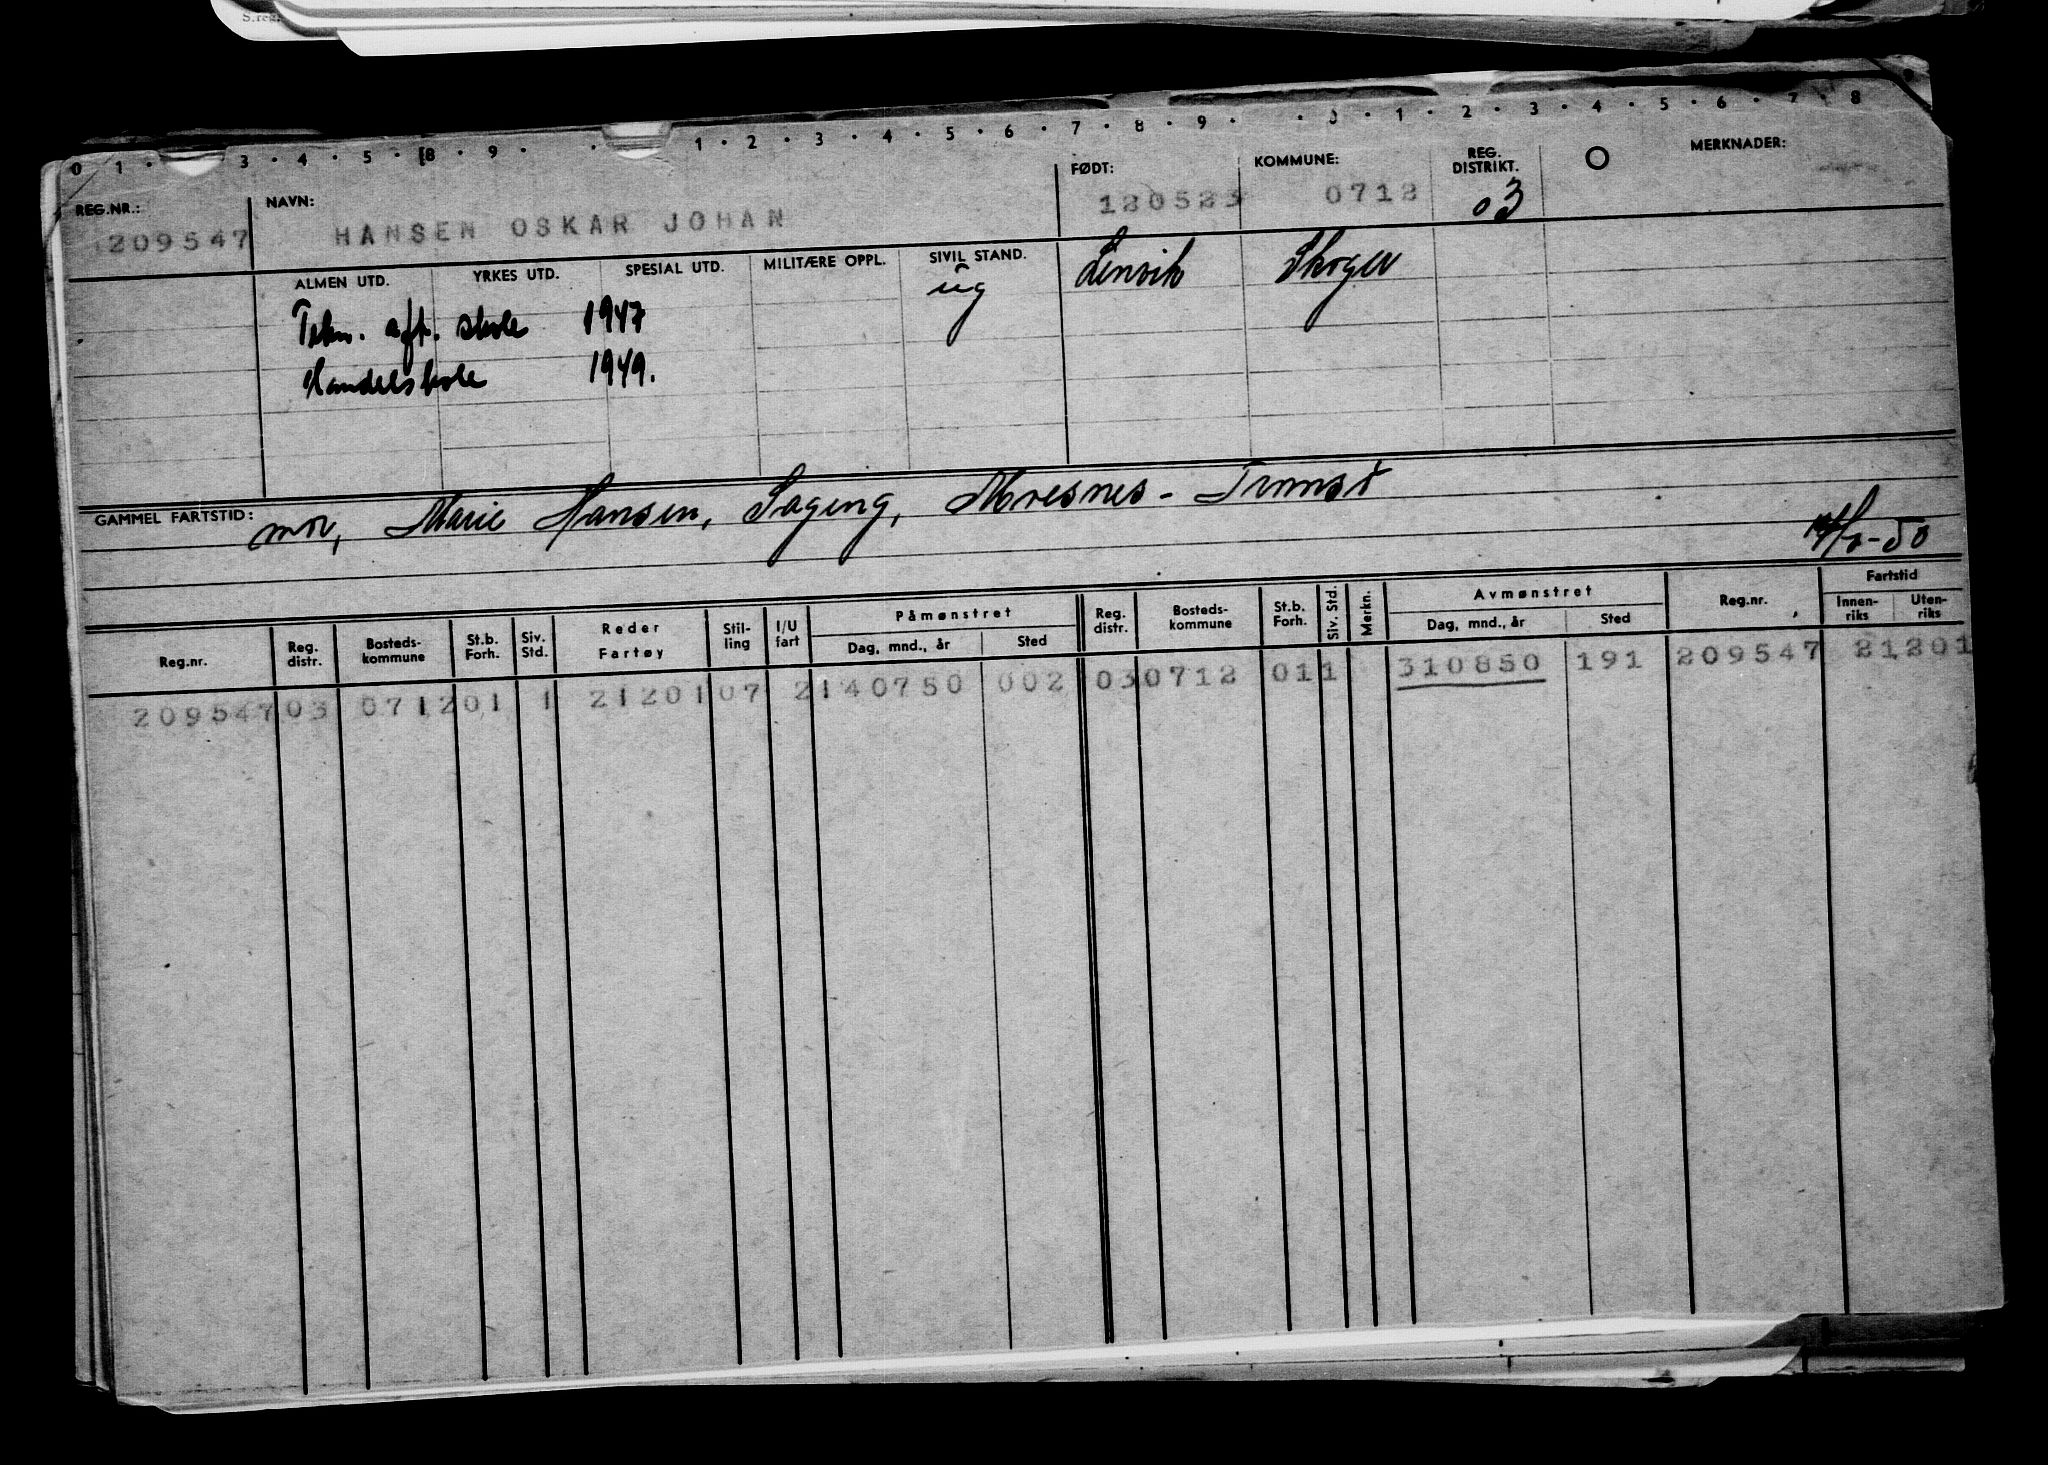 S.reg.
0 1 · 3 · 4 · 5 · 8 · 9 · · 1 · 2 · 3 · 4 · 5 · 6 · 7 · 8 · 9 · · 0 · 1 · 2 · 3 · 4 · 5 · 6 · 7 · 8 9
REG.NR.: NAVN: FØDT: KOMMUNE: REG. DISTRIKT. MERKNADER:
209547 HANSEN OSKAR JOHAN 120523 0712 03
ALMEN UTD. YRKES UTD. SPESIAL UTD. MILITÆRE OPPL. SIVIL STAND. Lenvik Skoger
ug
Tekn. aft. skole 1947
Handelskole 1949.
GAMMEL FARTSTID: mor, Marie Hansen, Sageng, Moesnes - Tromsø
Påmønstret Avmønstret Fartstid
Reg.nr. Reg. distr. Bosteds-kommune St.b. Forh. Siv. Std. Reder Fartøy Stil-ling I/U fart Dag, mnd., år Sted Reg. distr. Bosteds-kommune St.b. Forh. Siv. Std. Merkn. Dag, mnd., år Sted Reg.nr. Innen-riks Uten-riks
209547 03 0712 01 1 21201 07 2 140750 002 03 0712 01 1 310850 191 209547 21201